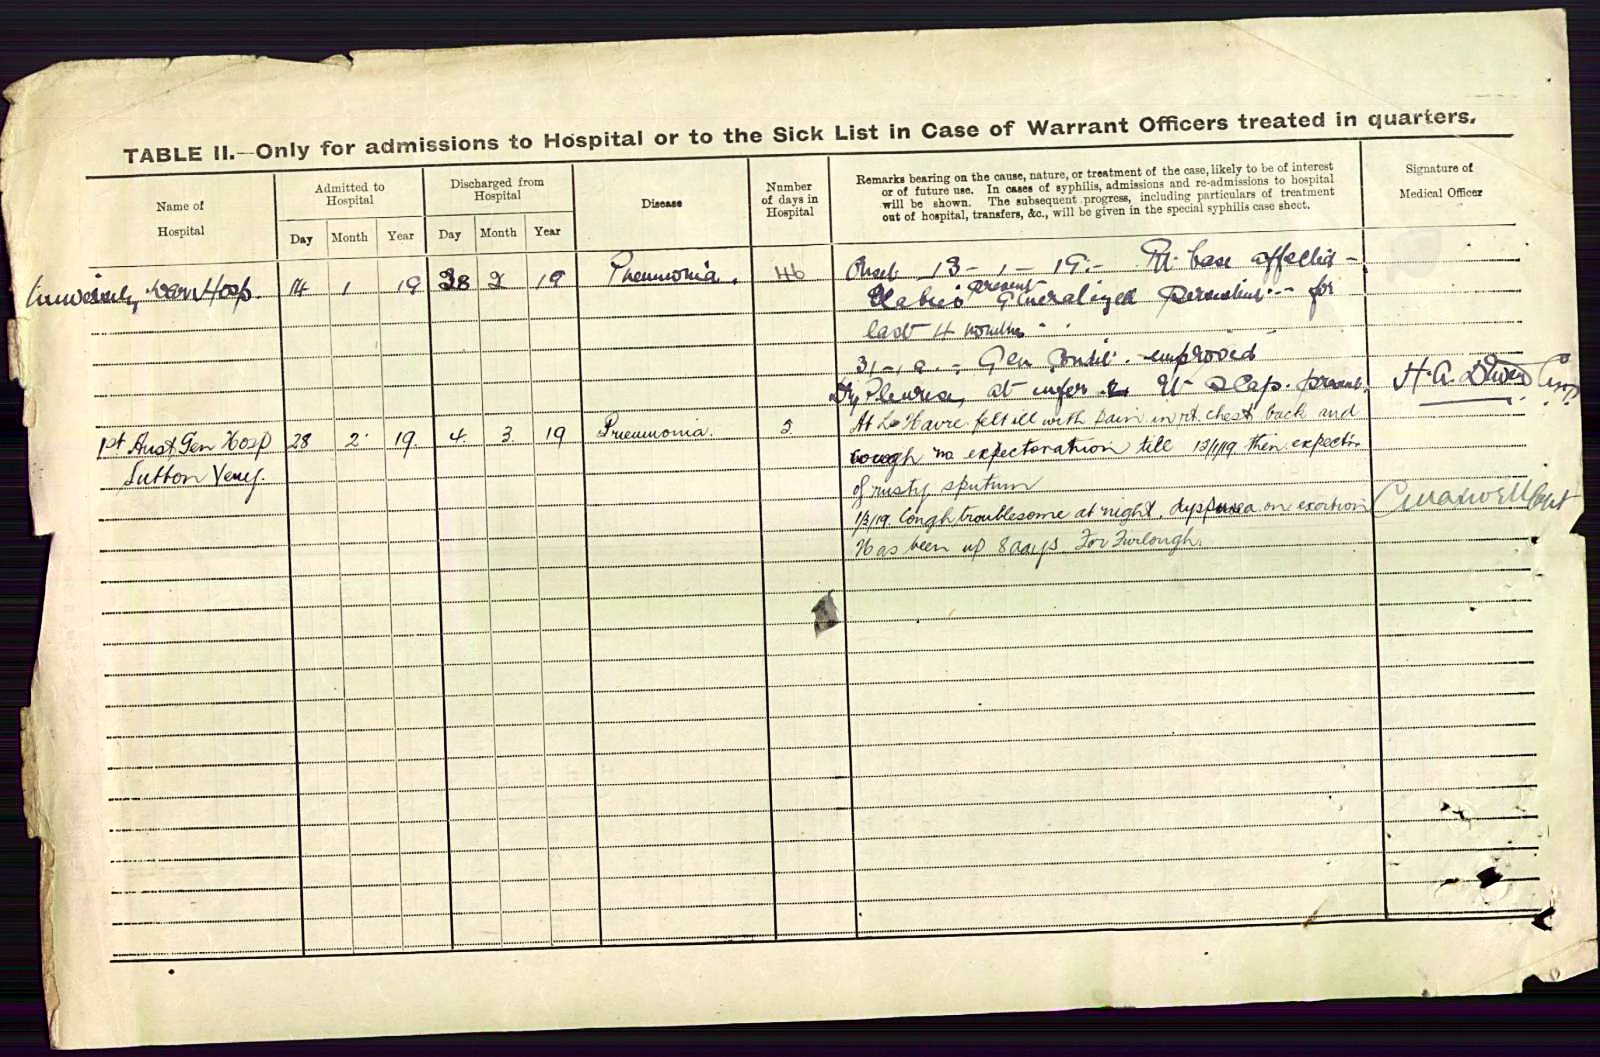 TABLE II.—Only for admissions to Hospital or to the Sick List in Case of Warrant Officers treated in quarters.
Name of Hospital
Admitted to Hospital
Discharged from Hospital
Disease
Number of days in Hospital
Remarks bearing on the cause, nature, or treatment of the case, likely to be of interest
or of future use. In cases of syphilis, admissions and re-admissions to hospital
will be shown. The subsequent progress, including particulars of treatment
out of hospital, transfers, &c., will be given in the special syphilis case sheet.
Signature of Medical Officer
Day Month Year Day Month Year
University War Hosp. 14 1 19 28 2 19 Pneumonia. 46 Onset 13-1-19.- Rt. base affected -
present
Generalized for
last 4 months
Gen. Condit. improved
at infer. Rt. Scap. present. H. A.
1st Aust Gen Hosp 28 2 19 4. 3 19 Pneumonia. 2 At Le Havre felt ill with pain in rt. chest, back and
Sutton Veny. cough no expectoration till 13/1/19 then expectn
of rusty sputum
1/3/19. Cough troublesome at night, dyspnea on exertion C Maxwell Capt
Has been up 8 days For Furlough.